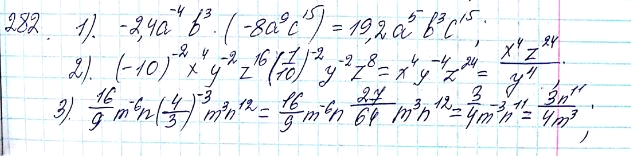 282. 1). -2,4a⁻⁴b³·(-8a⁹c¹⁵) = 19,2a⁵b³c¹⁵;
2). (-10)⁻²x⁴y⁻²z¹⁶(1/10)⁻²y⁻²z⁸ = x⁴y⁻⁴z²⁴ = x⁴z²⁴/y⁴.
3). 16/9 m⁻⁶n(4/3)⁻³m³n¹² = 16/9 m⁻⁶n 27/64 m³n¹² = 3/4 m⁻³n¹¹ = 3n¹¹/4m³;